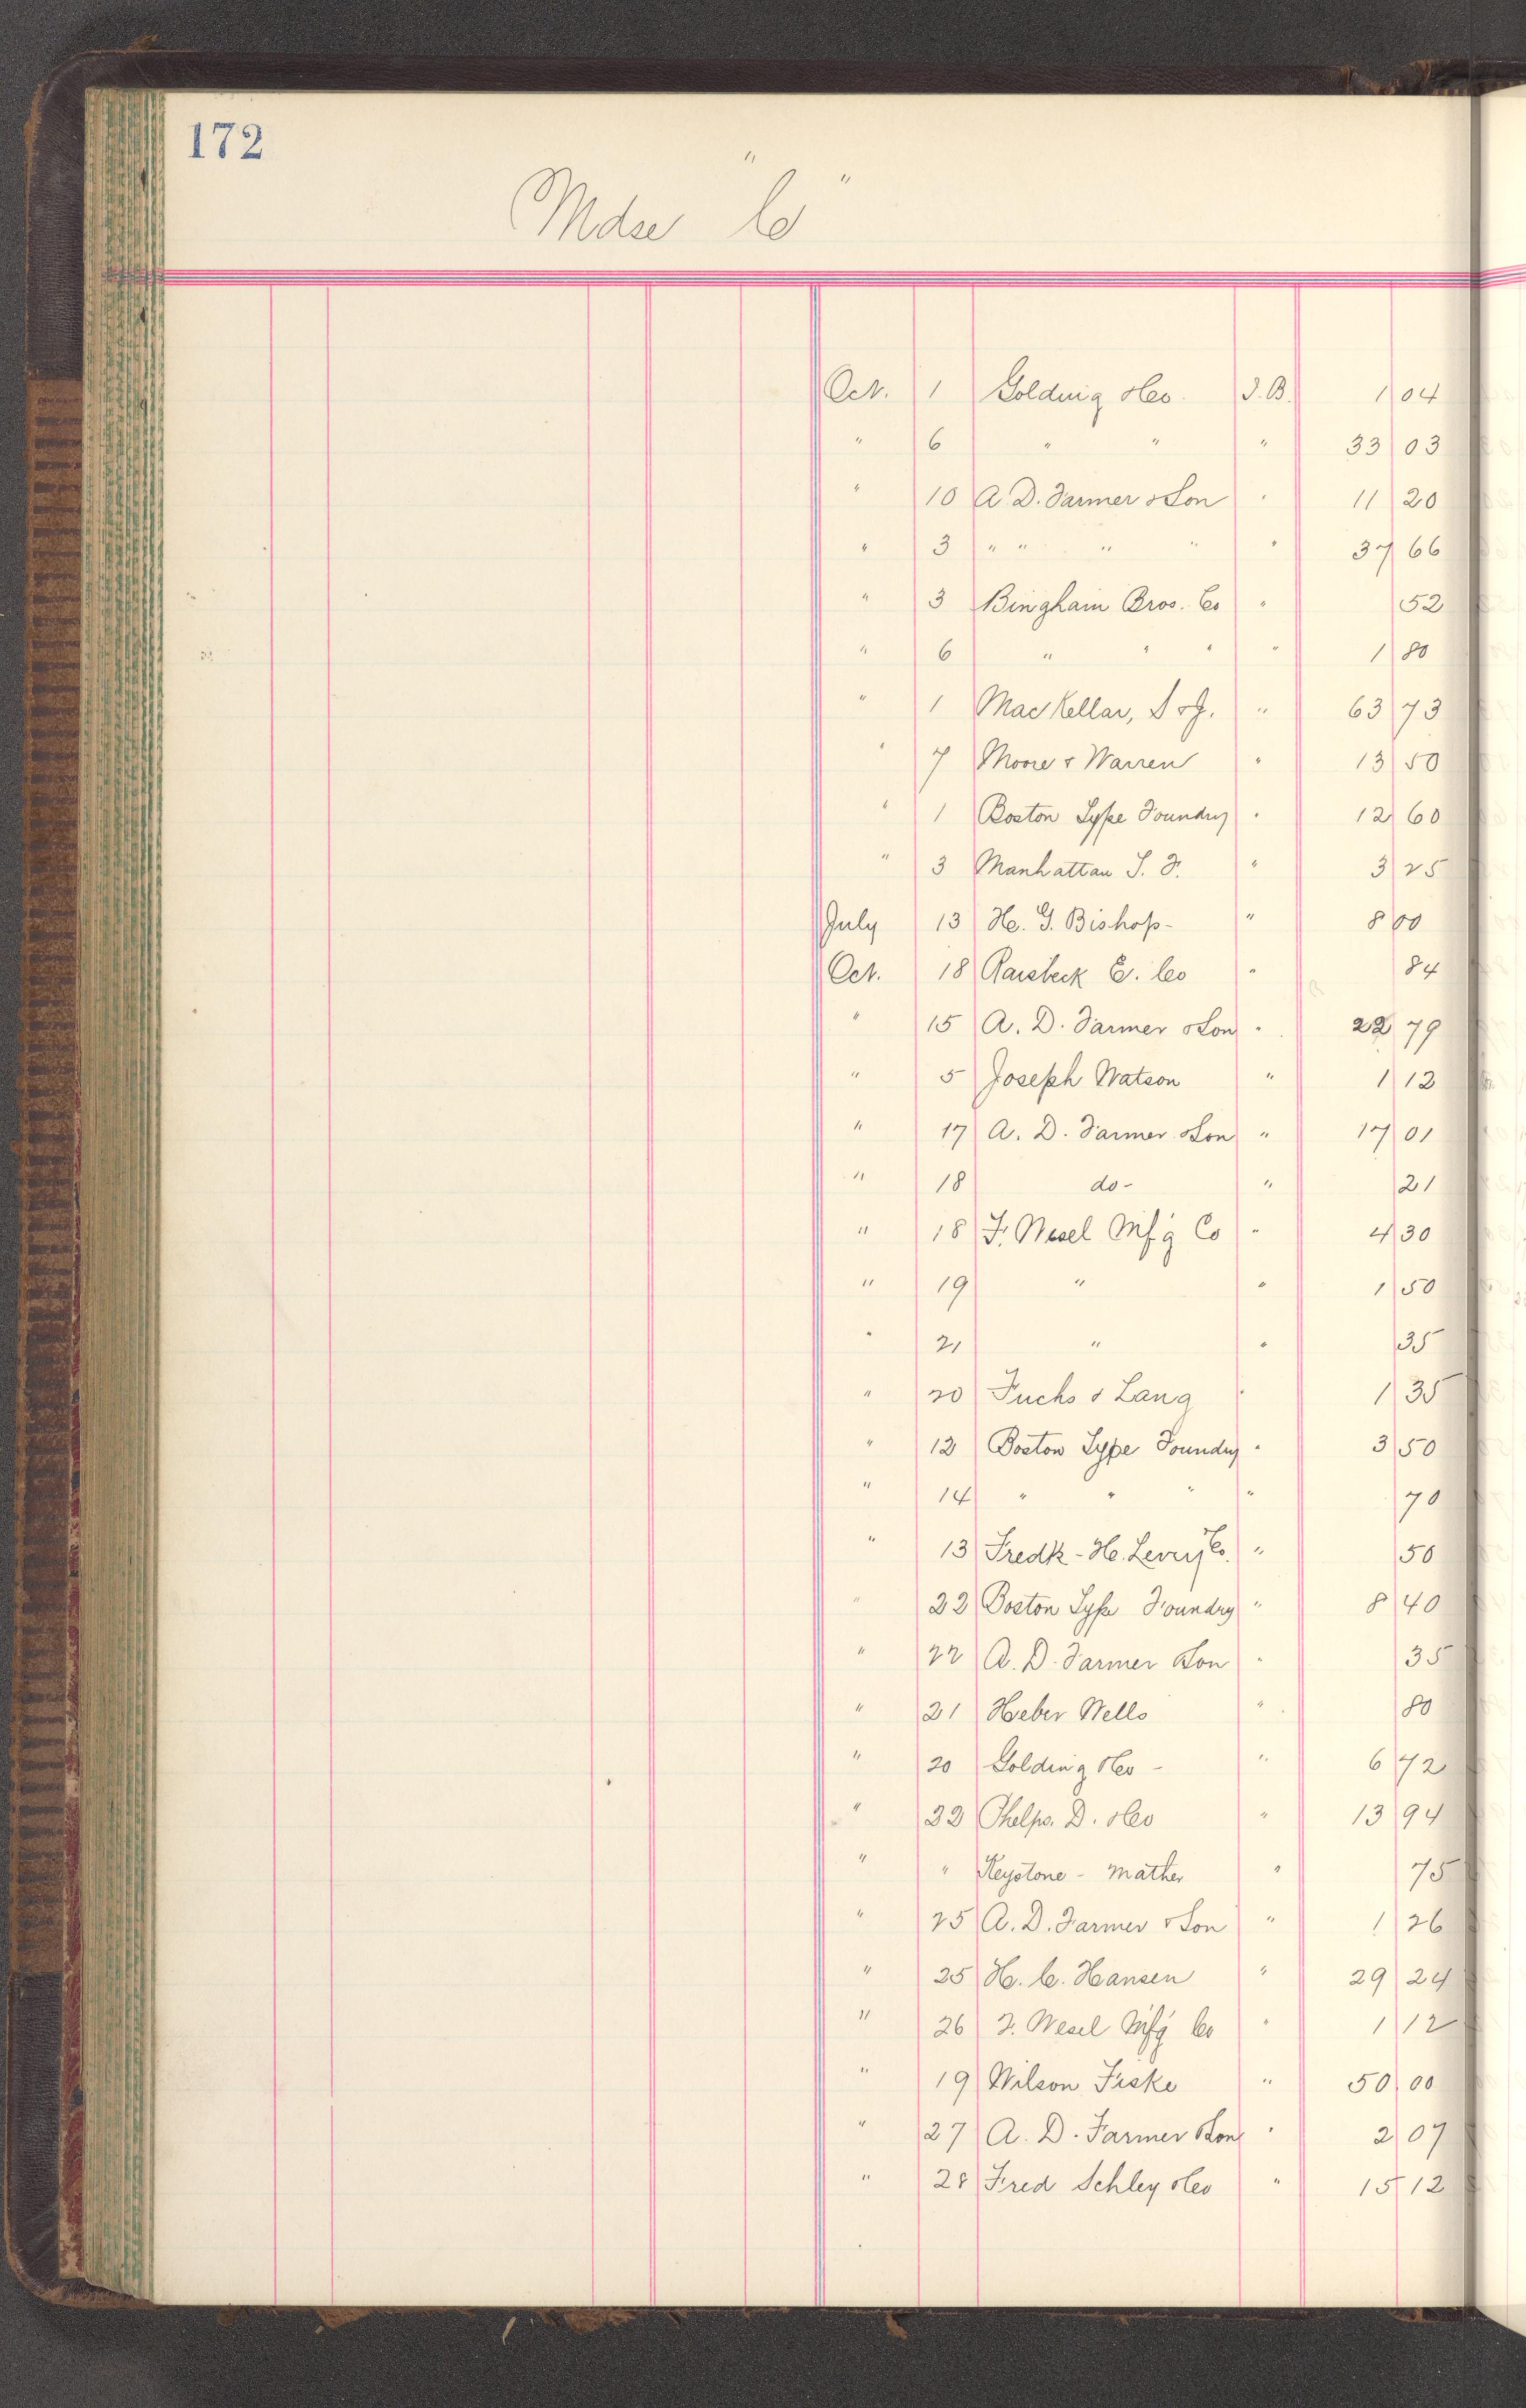 172
Mdse "C"
Oct. 1 Golding & Co. I.B. 1 04
" 6 " " " 33 03
" 10 A. D. Farmer & Son " 11 20
" 3 " " " " " 37 66
" 3 Bingham Bros. Co " 52
" 6 " " " " 1 80
" 1 MacKellar, S & J. " 63 73
" 7 Moore & Warren " 13 50
" 1 Boston Type Foundry " 12 60
" 3 Manhattan T. F. " 3 25
July 13 H. G. Bishop - " 8 00
Oct. 18 Raisbeck E. Co " 84
" 15 A. D. Farmer & Son " 22 79
" 5 Joseph Watson " 1 12
" 17 A. D. Farmer & Son " 17 01
" 18 do - " 21
" 18 F. Wesel Mf'g Co " 4 30
" 19 " " 1 50
" 21 " " 35
" 20 Fuchs & Lang " 1 35
" 12 Boston Type Foundry " 3 50
" 14 " " " " 70
" 13 Fredk - H. Levey Co. " 50
" 22 Boston Type Foundry " 8 40
" 22 A. D. Farmer & Son " 35
" 21 Heber Wells " 80
" 20 Golding & Co - " 6 72
" 22 Phelps. D. & Co " 13 94
" " Keystone - Mather " 75
" 25 A. D. Farmer & Son " 1 26
" 25 H. C. Hansen " 29 24
" 26 F. Wesel Mf'g Co " 1 12
" 19 Wilson Fiske " 50 00
" 27 A. D. Farmer & Son " 2 07
" 28 Fred Schley & Co " 15 12